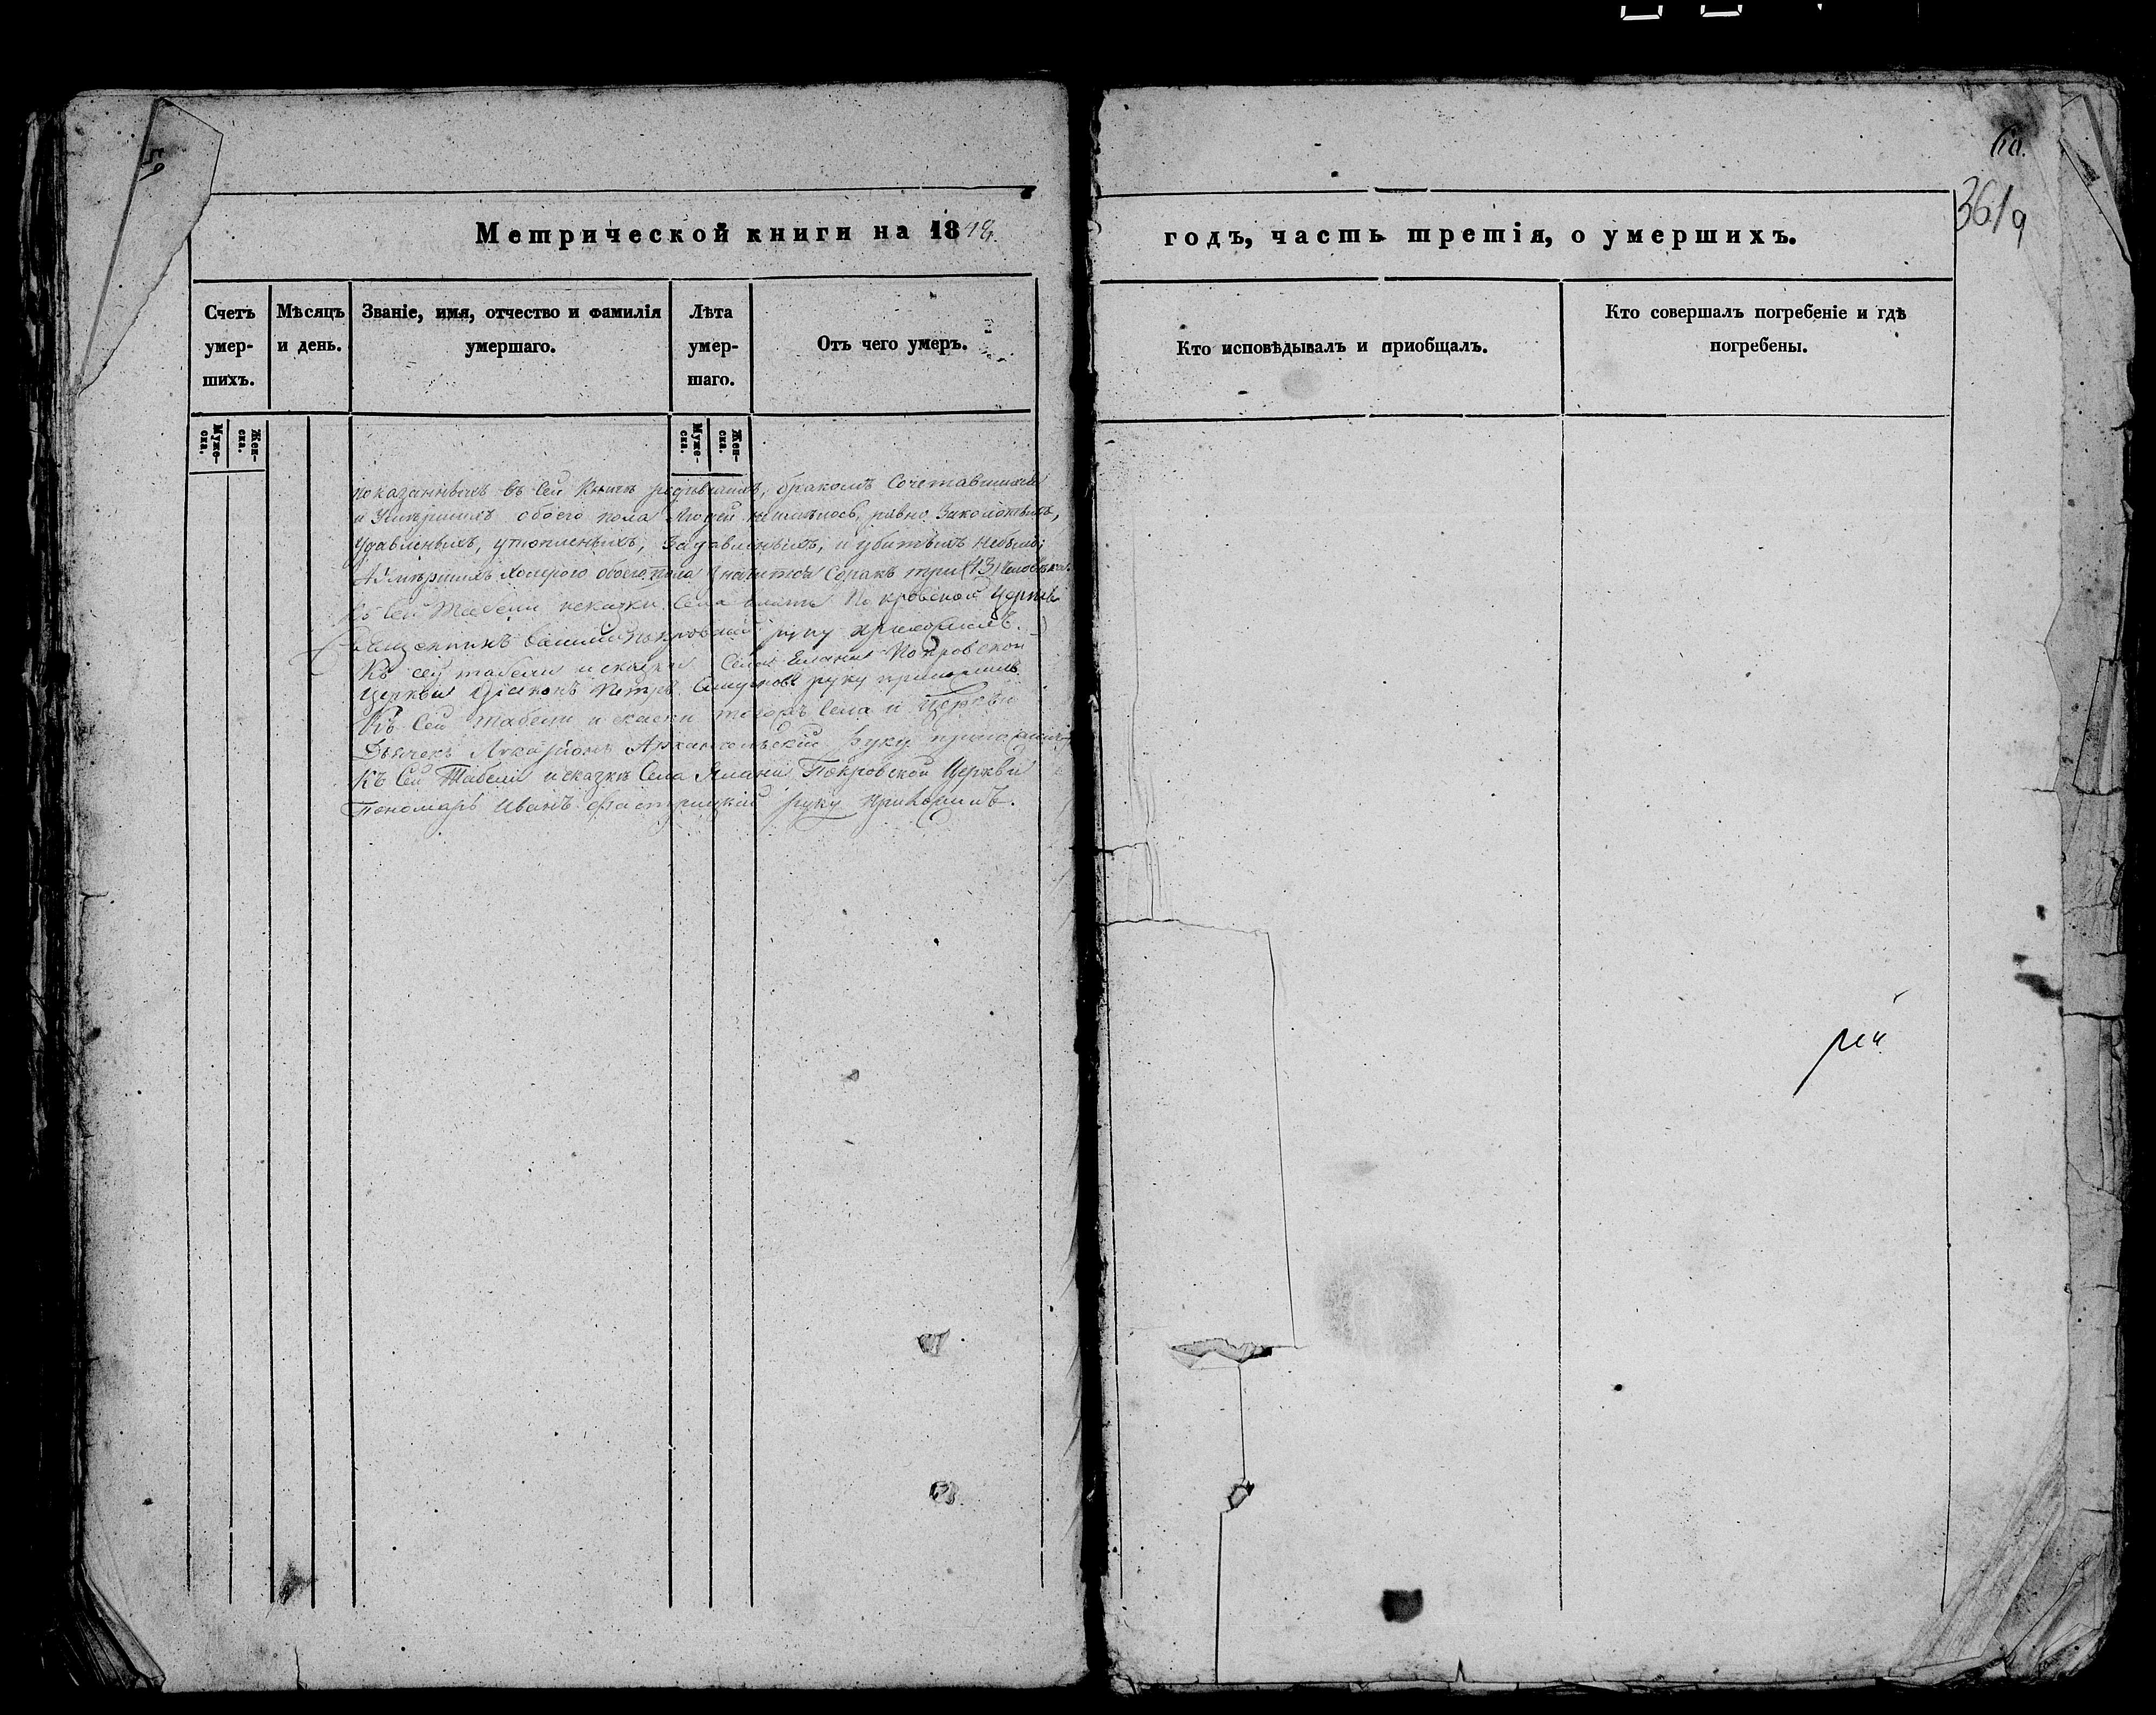 59
60.
361/9
Метрической книги на 1848.
годъ, часть третія, о умершихъ.
Счетъ умер-шихъ.
Мѣсяцъ и день.
Званіе, имя, отчество и фамилія умершаго.
Лѣта умер-шаго.
Отъ чего умеръ.
Кто исповѣдывалъ и приобщалъ.
Кто совершалъ погребеніе и гдѣ погребены.
Муже-ска.
Жен-ска.
Муже-ска.
Жен-ска.
показанныхъ въ сей Книгѣ бракомъ Сочетавшихся
и Умѣршихъ обоего пола Людей равно
Удавленыхъ, утопленыхъ, и убитыхъ небыло;
Умѣршихъ Холерою обоего пола Сорокъ три (43) Человѣка.
Къ сей Табели Села Покровской Церкви
Священникъ Василій Покровскій руку приложилъ.
Къ сей табели и скаски Села Елани Покровской
Церкви Діаконъ Петръ руку приложилъ
Къ Сей Табели и скаски тогожъ Села и Церкви
Дьячекъ Архангельскій руку приложилъ
Къ Сей Табели и сказкѣ Села Елани Покровской Церкви
Пономарь Иванъ руку приложилъ.
рей